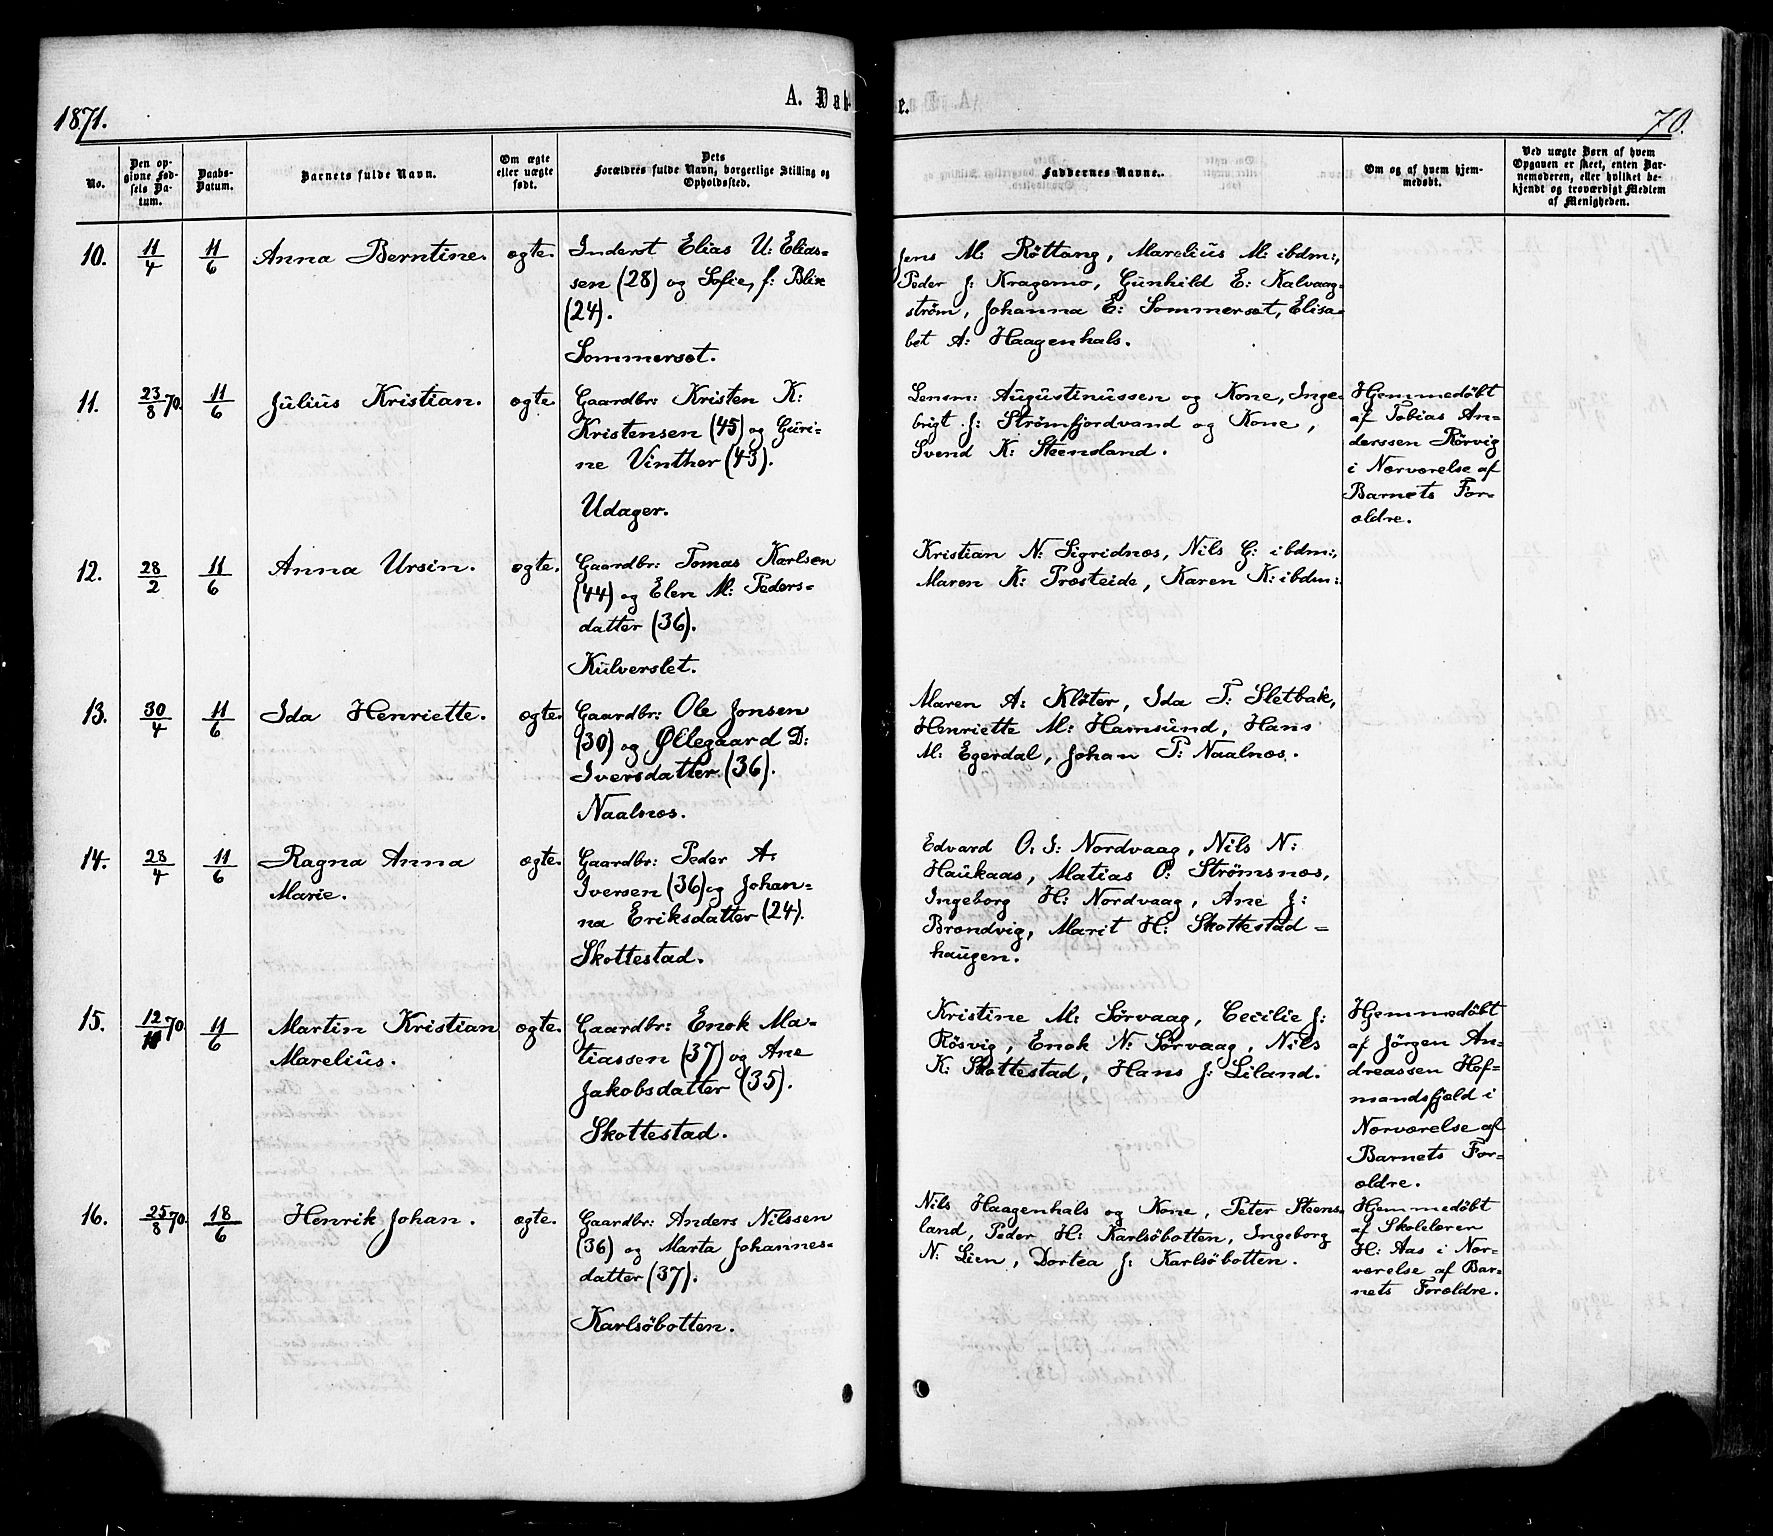 1871.
A. Dab-
e.
70.
No.
Den op-
givne Fød-
sels Da-
tum.
Daabs-
Datum.
Barnets fulde Navn.
Om ægte
eller uægte
født.
Dets
Forældres fulde Navn, borgerlige Stilling og
Opholdssted.
Faddernes Navne.
Om og af hvem hjem-
medøbt.
Ved uægte Børn af hvem
Opgaven er skeet, enten Bar-
nemoderen, eller hvilket be-
kjendt og troværdigt Medlem
af Menigheden.
10. 11/4 11/6 Anna Berntine. ægte.
Inderst Elias U: Elias-
sen (28) og Sofie, f: Blix
(24).
Sommerset.
Jens M: Röttang, Marelius M: ibdm:,
Peder J: Kragemo, Gunhild E: Kalvaag-
strøm, Johanna E: Sommerset, Elisa-
bet A: Haagenhals.
11. 23/8 70. 11/6 Julius Kristian. ægte.
Gaardbr: Kristen K:
Kristensen (45) og Guri-
ne Vinther (43).
Udager.
Lensm: Augustinussen og Kone, Inge-
brigt J: Strömfjordvand og Kone,
Svend K: Steensland.
Hjemmedöbt
af Tobias An-
derssen Rörvig
i Nærværelse af
Barnets For-
ældre.
12. 28/2 11/6 Anna Ursin. ægte.
Gaardbr: Tomas Karlsen
(44) og Elen M: Peders-
datter (36).
Kulverslet.
Kristian N: Sigridnæs, Nils G: ibdm:,
Maren K: Præsteide, Karen K: ibdm:
13. 30/4 11/6 Ida Henriette. ægte.
Gaardbr: Ole Jonsen
(30) og Øllegaard D:
Iversdatter (36).
Naalnæs.
Maren A: Klöter, Ida T: Sletbak,
Henriette M: Hamsund, Hans
M: Egerdal, Johan P: Naalnæs.
14. 28/4 11/6 Ragna Anna
Marie.
ægte.
Gaardbr: Peder A:
Iversen (36) og Johan-
na Eriksdatter (24).
Skottestad.
Edvard O: I: Nordvaag, Nils N:
Haukaas, Matias P: Strömsnæs,
Ingeborg H: Nordvaag, Ane J:
Brændvig, Marit H: Skottestad-
haugen.
15. 12/10 70. 11/6 Martin Kristian
Marelius.
ægte.
Gaardbr: Enok Ma-
tiassen (37) og Ane
Jakobsdatter (35).
Skottestad.
Kristine M: Sörvaag, Cecilie J:
Rösvig, Enok N: Sörvaag, Nils
K: Skottestad, Hans J: Liland.
Hjemmedöbt
af Jörgen An-
dreassen Hof-
mandsfjeld i
Nærværelse af
Barnets For-
ældre.
16. 25/8 70. 18/6 Henrik Johan. ægte.
Gaardbr: Anders Nilssen
(36) og Marta Johannes-
datter (37).
Karlsöbotten.
Nils Haagenhals og Kone, Peter Steens-
land, Peder H: Karlsöbotten, Ingeborg
N: Lien, Dortea J: Karlsöbotten.
Hjemmedöbt
af Skolelærer
H: Aas i Nær-
værelse af Bar-
nets Forældre.